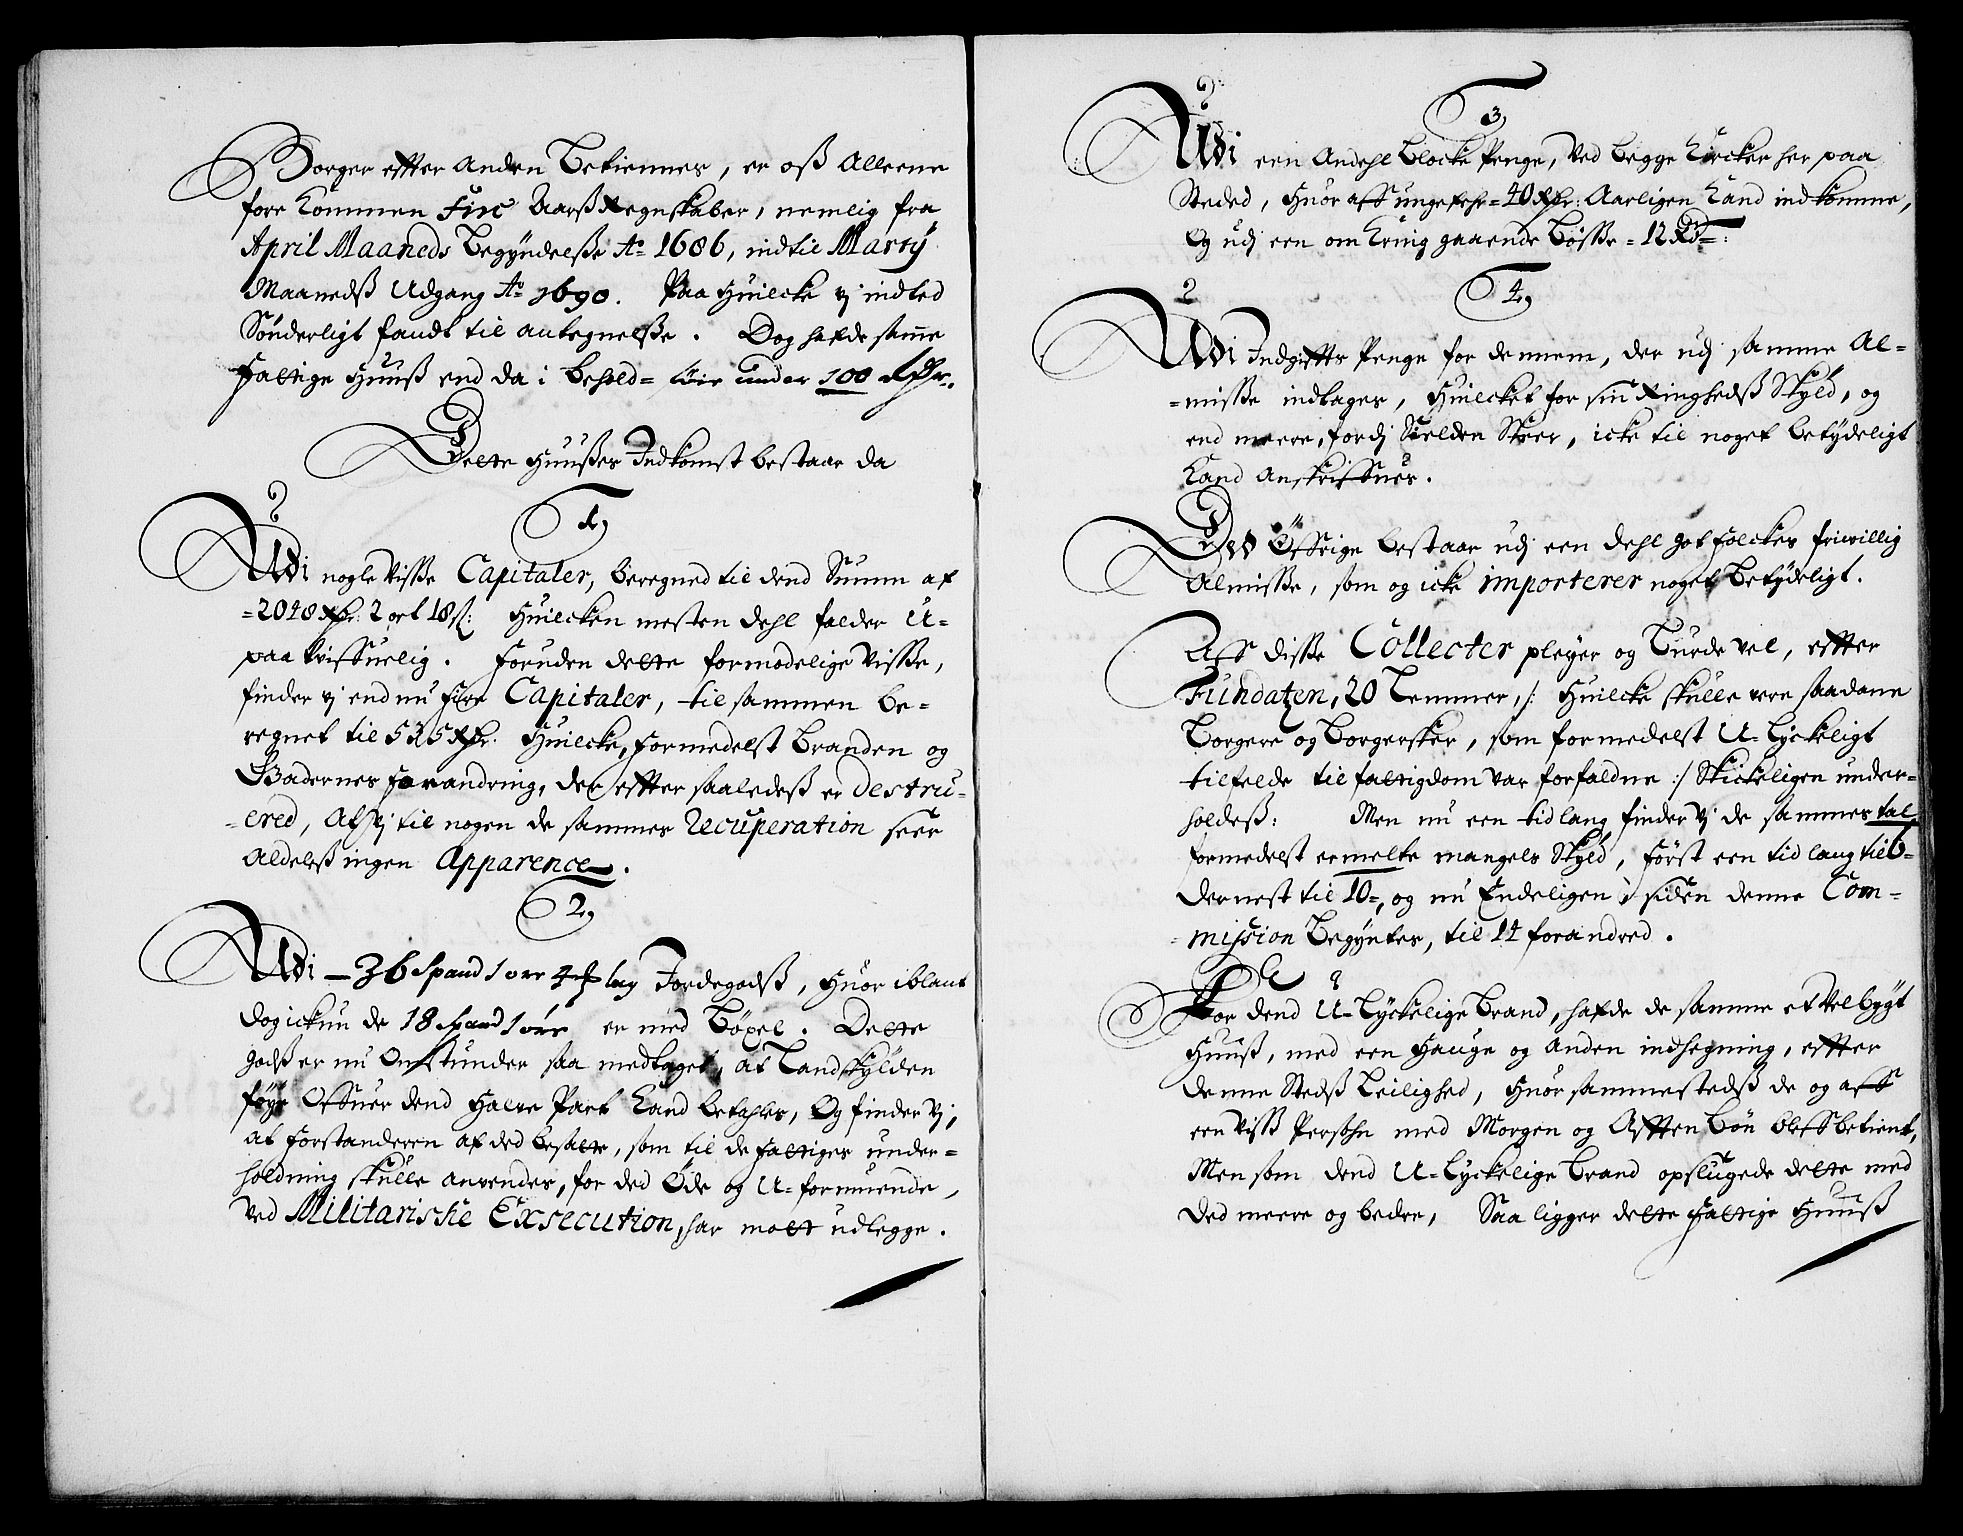 Borger effter Anden Betiennes, er oß Alleene
fore kommen Fire Aarß Regnskaber, nemlig fra
April Maaneds Begÿndelße Ao 1686, indtil Martÿ
Maanedß Udgang Ao 1690. Paa Huilcke vj indted
Sønderligt fandt til antegnelße. Dog hafde samme
Fattige Huuß end da i behold= under 100 Rdr.
Dette Huußes Indkomst bestaar da
1,
Udi nogle Visße Capitaler, beregned til dend Summ af
=2048 Rdr: 2 ort 18 s: Huilcken mesten dehl falder U=
paa tvifuelig. Foruden dette formodelige Visße,
finder vj end nu fire Capitaler, til sammen be=
regnet til 535 Rdr. Huilcke, formedelst Branden og
Tÿdernes forandring, der effter saaledeß er destru=
=ered, At vj til nogen de sammes recuperation seer
Aldelß ingen Apparence.
2,
Udi - 36 Spand 1 øre laug Jordegodß, Huor iblant
dog ickun de 18 Spand 1 øre er med Bøxel. Dette
godß er nu saa medtaget, at Landskÿlden
føÿe Ofuer dend Halve Part kand betahles, Og finder vj,
at Forstanderen af ded besatte, som til de Fattiges under=
holdning skulle anvendes, for ded Øde og U=formuende,
ved Militariske Exsecution, har mott udlegge.
3,
Udi een Andehl Blocke Penge, ved begge Kircker her paa
Steded, Huor aff ungefehr =40 Rdr: Aarligen kand indkomme,
Og udj een omkring gaaende Bøsße =12 Rdr:
4,
Udi Indgiffts Penge for dennem, der udj samme Al=
=misße indtages, Huilcket for sin Ringhedß Skÿld, og
end meere, fordj Sielden Skeer, icke til noget betÿdeligt
kand Anskrifues.
Ded Øfrige bestaar udj een dehl got folckes friwillig
Almisße, som og icke importerer noget betÿdeligt.
Aff disße Collecter pleÿer og Burde vel, effter
Fundatzen, 20 Lemmer, /: Huilcke skulle vere saadane
Borgere og Borgersker, som formedelst U=lÿckeligt
tilfelde til fattigdom var forfaldne :/ Skickeligen under=
holdeß: Men nu een tid lang finder vj de sammes tal,
formedelst ermelte mangels Skÿld, først een tid lang til 6=
dernest til 10=, og nu Endeligen, siden denne Com=
=mission Begÿntes, til 14 forandred.
For dend U=Lÿckelige Brand, hafde de samme et vel bÿgt
Huuß, med een Hauge og anden indhegning, effter
denne Stedß Leilighed, Huor sammestedß de og aff
een viß Persohn med Morgen og Afften Bøn blef betient,
Men som dend U=Lÿckelige Brand opslugede dette med
ded meere og bedre, Saa ligger dette Fattige Huuß